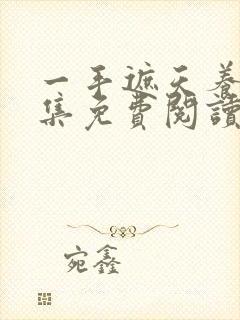 一手遮天养
集免費閱讀
宛鑫